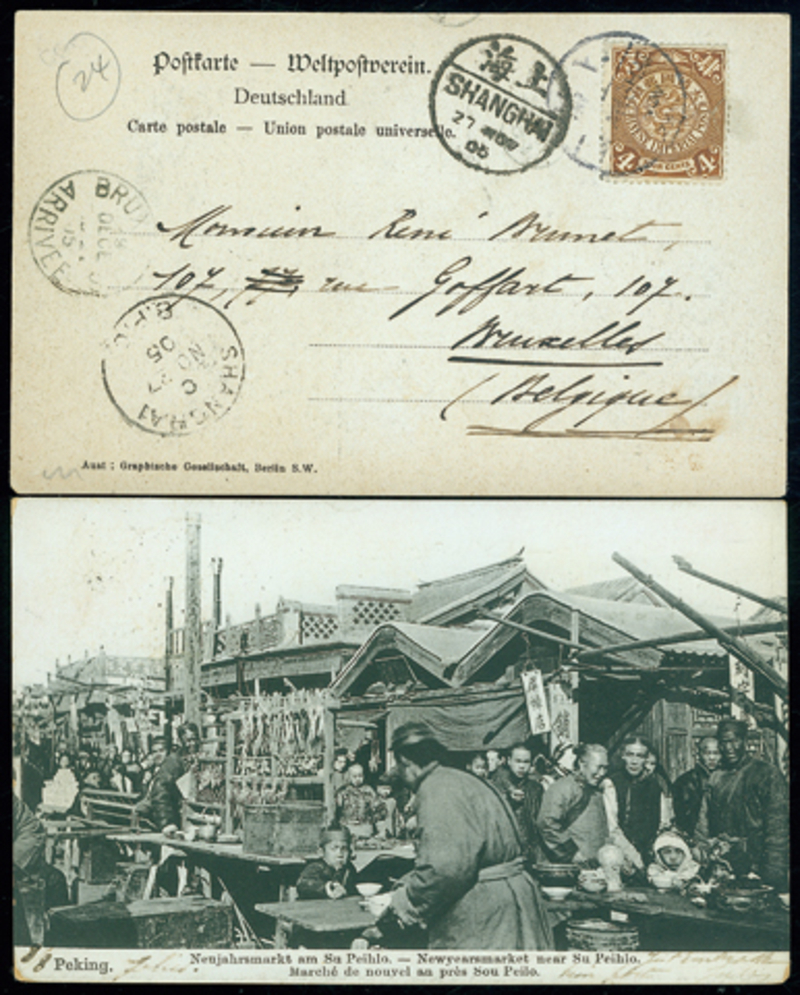 24
Postkarte — Weltpostverein.
Deutschland
Carte postale — Union postale universelle.
上海
SHANGHAI
27 NOV
05
CHINESE IMPERIAL POST
4 4
BRUX
ARRIVEE
Monsieur René Brunet,
107, rue Goffart, 107.
Bruxelles
(Belgique)
SHANGHAI
05
Aust : Graphische Gesellschaft, Berlin S.W.
Peking.
Neujahrsmarkt am Su Peihlo. — Newyearsmarket near Su Peihlo.
Marché de nouvel an près Sou Peilo.